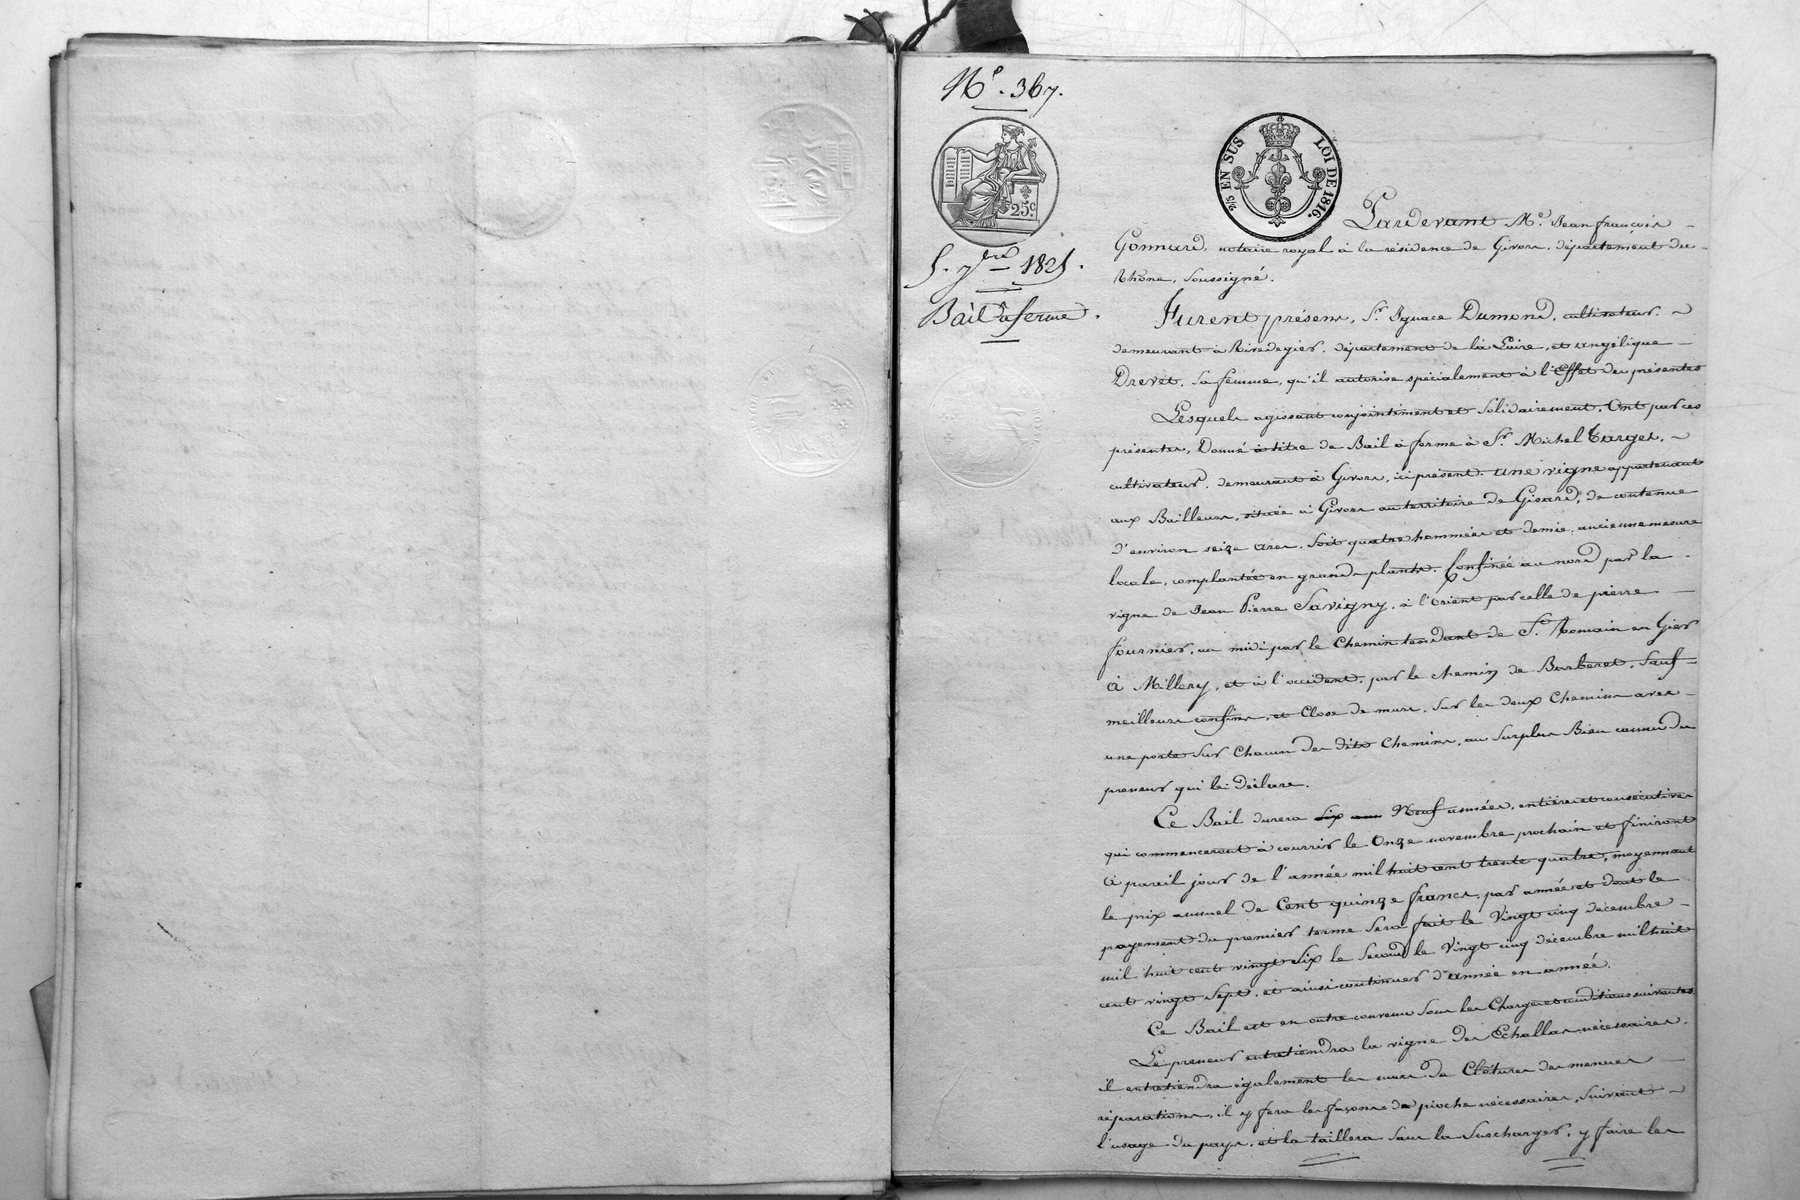 Nº. 367.
25c.
2/5 EN SUS LOI DE 1816.
5. 7bre 1825.
Bail à ferme.
Pardevant Me. Jean françois
Gonnard, notaire royal à la résidence de Givors, département du
Rhône, soussigné.
Furent présens, Sr. Ignace Dumond, cultivateur,
demeurant à Rivedegier, département de la Loire, et angélique
Drevet, sa femme, qu'il autorise spécialement à l'Effet des présentes
Lesquels agissant conjointement et solidairement, Ont par ces
présentes, Donné à titre de Bail à ferme à Sr. Michel Targer,
cultivateur, demeurant à Givors, ici présent, une vigne appartenant
aux Bailleurs, située à Givors au territoire de Gisard, de contenue
d'environ seize ares, soit quatre hommées et demie, ancienne mesure
locale, complantée en grands plants. Confinée au nord par la
vigne de Jean Pierre Savigny, à l'Orient par celle de pierre
fournier, au midi par le Chemin tendant de St. Romain en Gier
à Millery, et à l'occident, par le chemin de Barberet, sauf
meilleurs confins, et Close de murs, sur les deux Chemins avec
une porte sur Chacun des dits Chemins, au surplus Bien connu du
preneur qui le Déclare.
Ce Bail durera six ans Neuf années, entières et consécutives
qui commenceront à courrir le Onze novembre prochain et finiront
à pareil jour de l'année mil huit cent trente quatre, moyennant
le prix annuel de Cent quinze francs, par année et dont le
payement du premier terme sera fait le Vingt cinq décembre
mil huit cent vingt six le second le Vingt cinq décembre mil huit
cent vingt sept, et ainsi continuer d'année en année.
Ce Bail est en outre convenu sous les Charges et conditions suivantes
Le preneur entretiendra la vigne des Echallas nécessaires,
il entretiendra également les murs de Clôtures de menues
réparations, il y fera les façons de pioche nécessaires, suivant
l'usage du pays, et la taillera sans la surcharger, y faire les